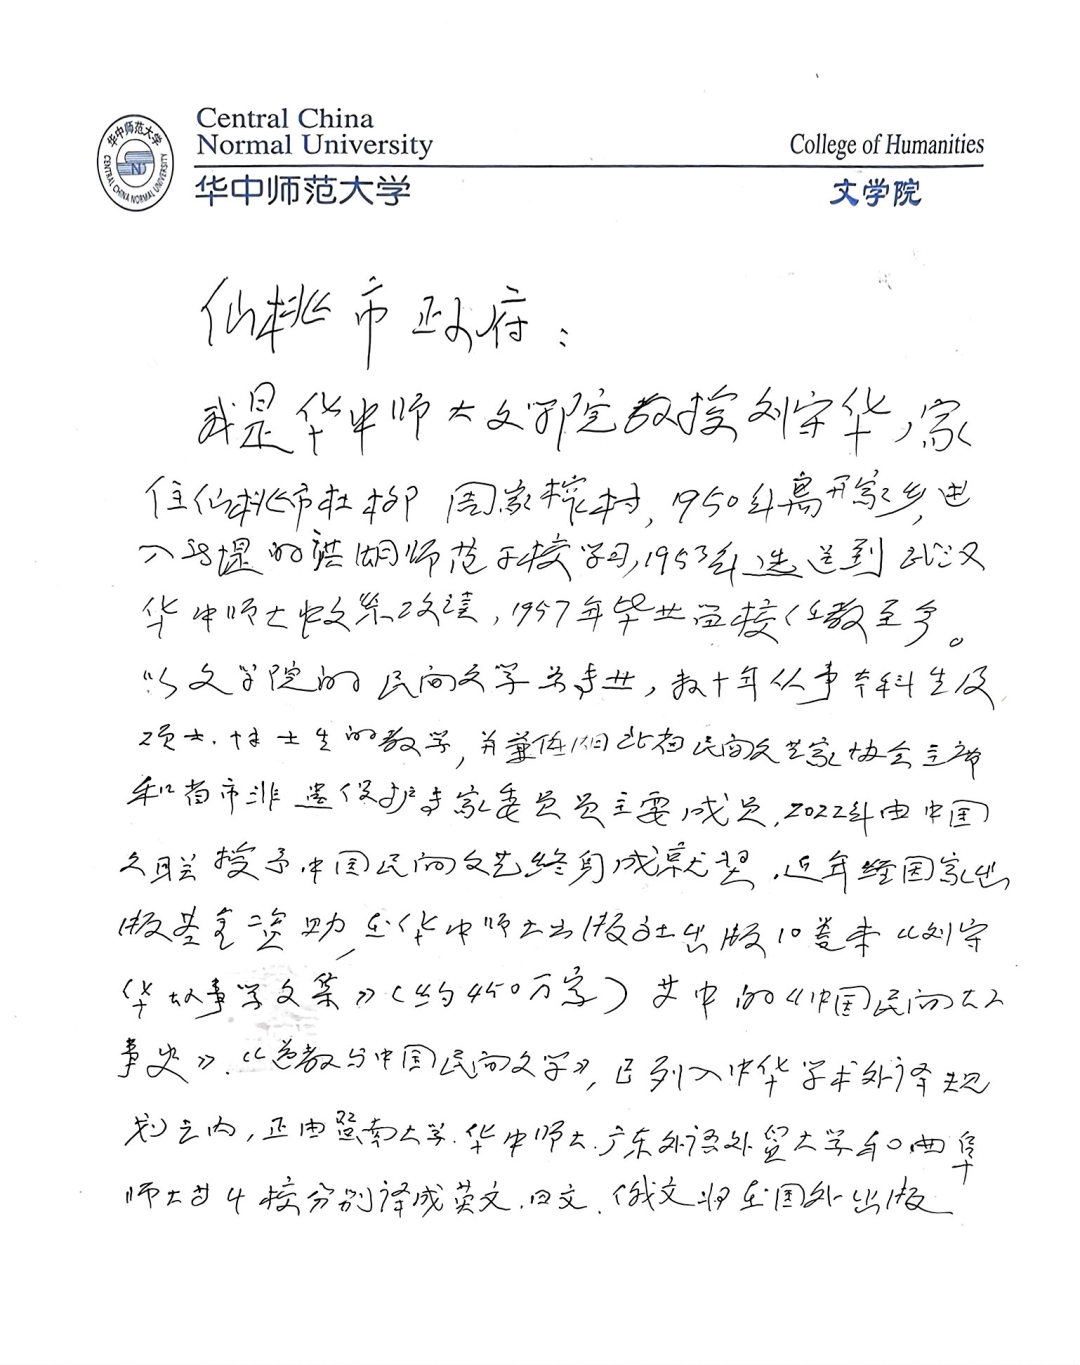 Central China
Normal University
College of Humanities
华中师范大学
文学院
华中师范大学
CENTRAL CHINA NORMAL UNIVERSITY
仙桃市政府：
我是华中师大文学院教授刘守华，家
住仙桃市杜柳周家榨村，1950年离开家乡，进
入沔堤的洪湖师范学校学习，1953年选送到武汉
华中师大中文系攻读，1957年毕业留校任教至今。
以文学院的民间文学为专业，数十年从事本科生及
硕士、博士生的教学，并兼任湖北省民间文艺家协会主席
和省市非遗保护专家委员会主要成员，2022年由中国
文联授予中国民间文艺终身成就奖，近年经国家出
版基金资助，在华中师大出版社出版10卷本《刘守
华故事学文集》（约450万字）其中的《中国民间故
事史》、《道教与中国民间文学》，已列入中华学术外译规
划之内，正由暨南大学、华中师大、广东外语外贸大学和曲阜
师大等4校分别译成英文、日文、俄文将在国外出版